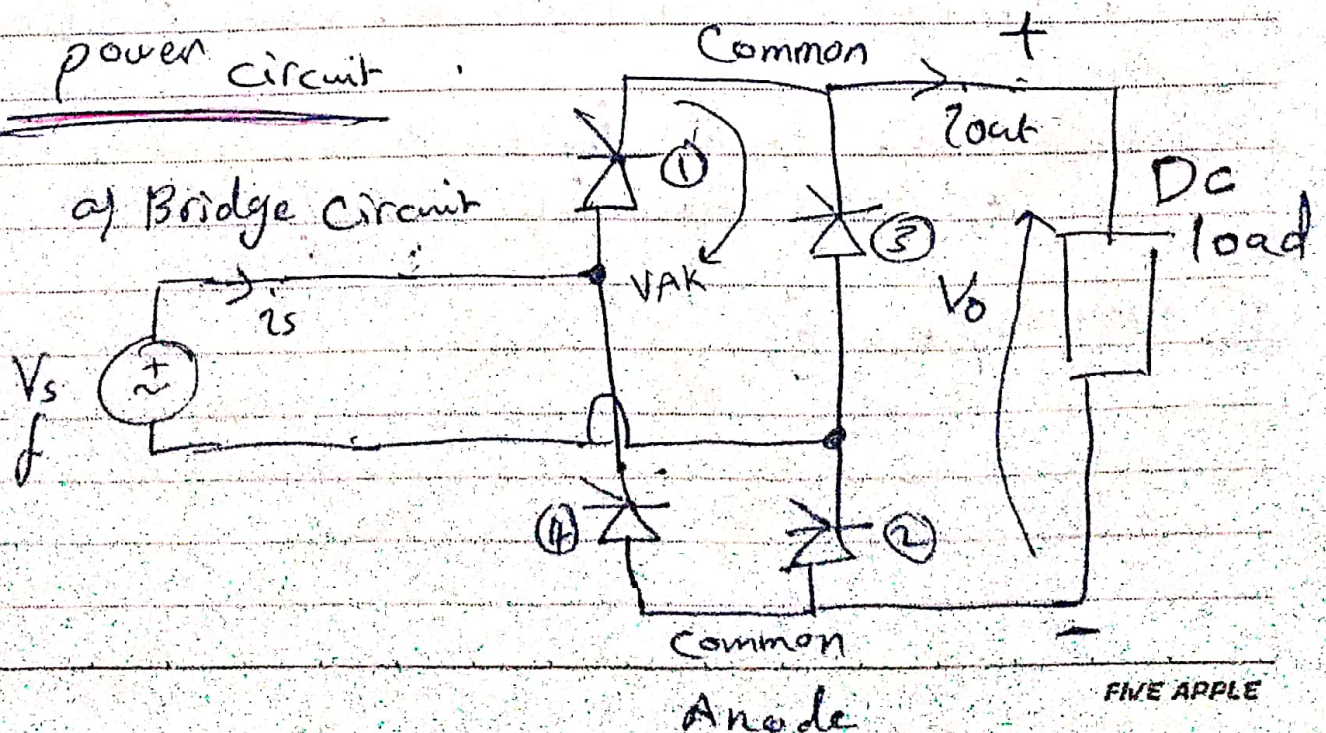 power circuit
Common +
iout
a) Bridge circuit
①
③
DC load
VAK
Vo
is
Vs
f
+
~
④
②
Common
-
Anode
FIVE APPLE